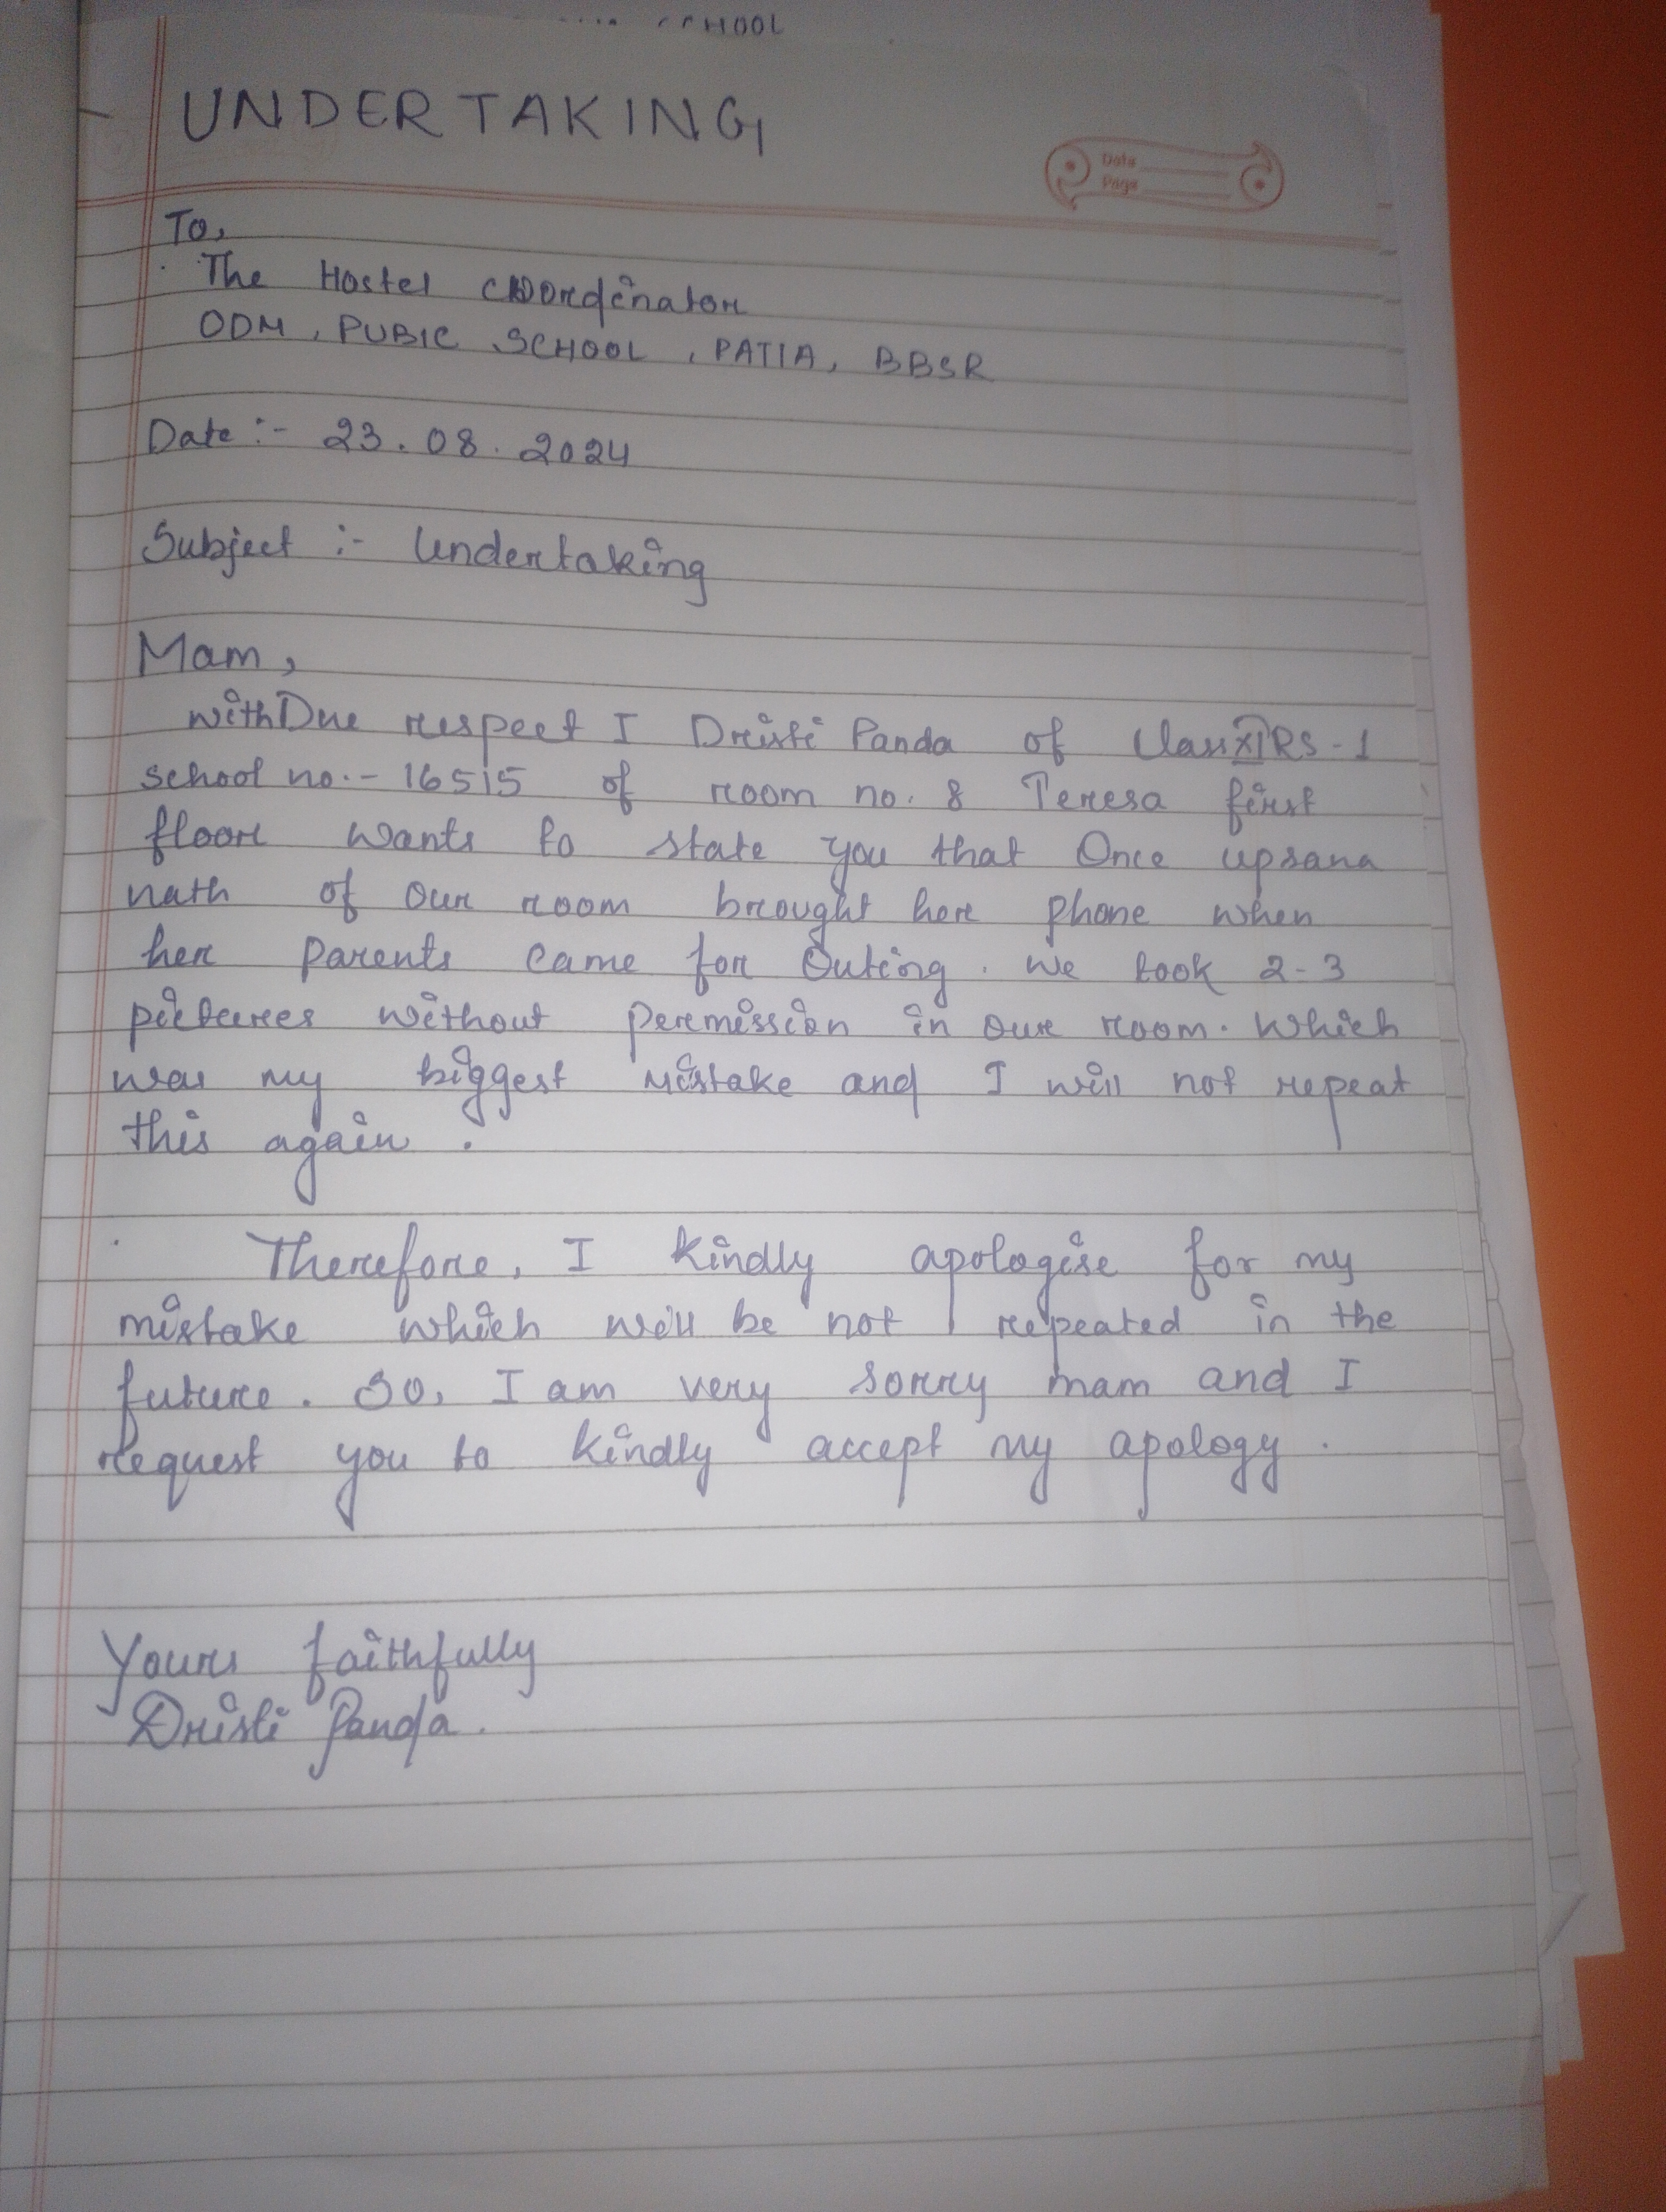 SCHOOL
UNDERTAKING
Date
Page
To,
The Hostel Coordinator
ODM, PUBIC SCHOOL, PATIA, BBSR
Date :- 23.08.2024
Subject :- Undertaking
Mam,
withDue respect I Dristi Panda of Class XI RS-1
school no.- 16515 of room no. 8 Teresa first
floor wants to state you that Once upsana
nath of our room brought her phone when
her parents came for Outing. We took 2-3
pictures without permission in our room. Which
was my biggest mistake and I will not repeat
this again.
Therefore, I kindly apologise for my
mistake which will be not repeated in the
future. So, I am very sorry mam and I
request you to kindly accept my apology.
Yours faithfully
Dristi Panda.